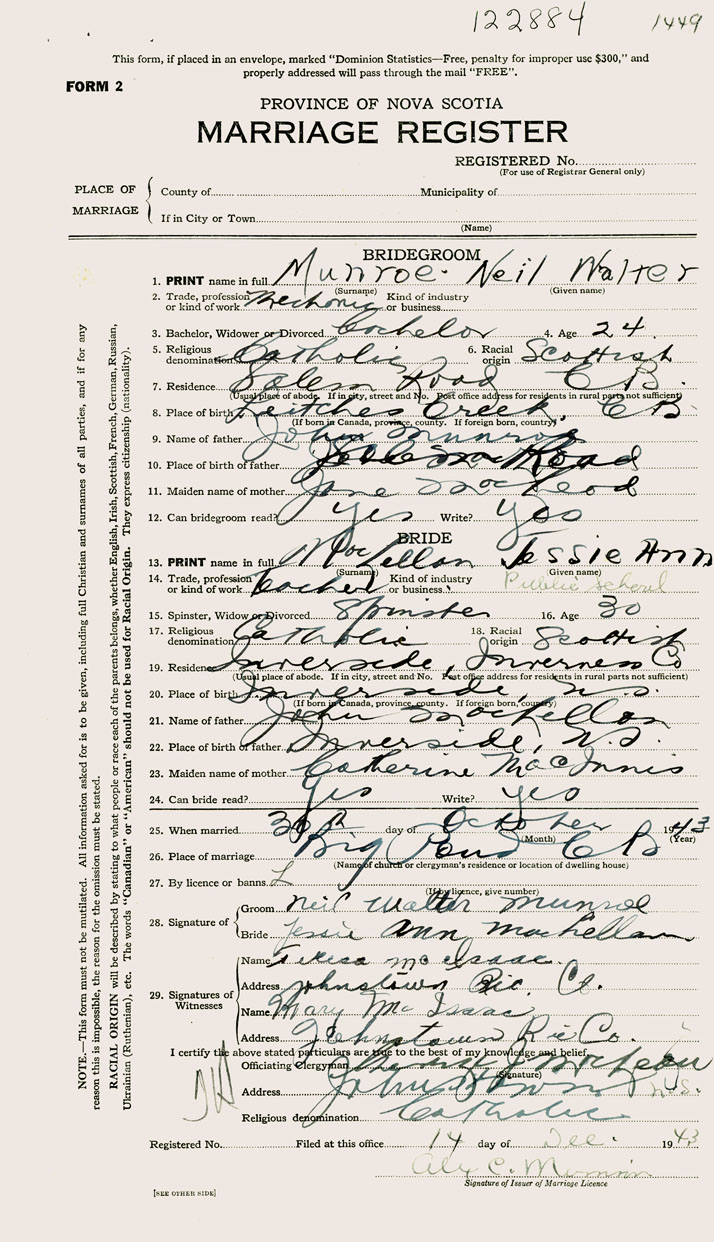 122884 1449
This form, if placed in an envelope, marked "Dominion Statistics—Free, penalty for improper use $300," and
properly addressed will pass through the mail "FREE".
FORM 2
PROVINCE OF NOVA SCOTIA
MARRIAGE REGISTER
REGISTERED No.
(For use of Registrar General only)
PLACE OF MARRIAGE
County of Municipality of
If in City or Town
(Name)
BRIDEGROOM
1. PRINT name in full Munroe Neil Walter
(Surname) (Given name)
2. Trade, profession or kind of work Mechanic Kind of industry or business
3. Bachelor, Widower or Divorced Bachelor 4. Age 24
5. Religious denomination Catholic 6. Racial origin Scottish
7. Residence Salem Road C B.
(Usual place of abode. If in city, street and No. Post office address for residents in rural parts not sufficient)
8. Place of birth Leitches Creek, C B.
(If born in Canada, province, county. If foreign born, country)
9. Name of father John Munroe
10. Place of birth of father Road
11. Maiden name of mother Jane MacLeod
12. Can bridegroom read? yes Write? yes
BRIDE
13. PRINT name in full MacLellan Jessie Ann
(Surname) (Given name)
14. Trade, profession or kind of work Teacher Kind of industry or business Public school
15. Spinster, Widow or Divorced Spinster 16. Age 30
17. Religious denomination Catholic 18. Racial origin Scottish
19. Residence Inverside, Inverness Co
(Usual place of abode. If in city, street and No. Post office address for residents in rural parts not sufficient)
20. Place of birth Inverside, N.S.
(If born in Canada, province, county. If foreign born, country)
21. Name of father John MacLellan
22. Place of birth of father Inverside, N.S.
23. Maiden name of mother Catherine MacInnis
24. Can bride read? Yes Write? yes
25. When married 30th day of October 1943
(Month) (Year)
26. Place of marriage Big Pond C B
(Name of church or clergyman's residence or location of dwelling house)
27. By licence or banns L
(If by licence, give number)
28. Signature of
Groom Neil Walter Munroe
Bride Jessie Ann MacLellan
29. Signatures of Witnesses
Name Teresa McIsaac
Address Johnstown Ric. Co.
Name Mary McIsaac
Address Johnstown Ric Co.
I certify the above stated particulars are true to the best of my knowledge and belief.
Officiating Clergyman
(Signature)
Address Johnstown N.S.
Religious denomination Catholic
Registered No. Filed at this office 14 day of Dec. 1943
Alex C.
Signature of Issuer of Marriage Licence
[SEE OTHER SIDE]
NOTE.—This form must not be mutilated. All information asked for is to be given, including full Christian and surnames of all parties, and if for any
reason this is impossible, the reason for the omission must be stated.
RACIAL ORIGIN will be described by stating to what people or race each of the parents belongs, whether English, Irish, Scottish, French, German, Russian,
Ukrainian (Ruthenian), etc. The words "Canadian" or "American" should not be used for Racial Origin. They express citizenship (nationality).